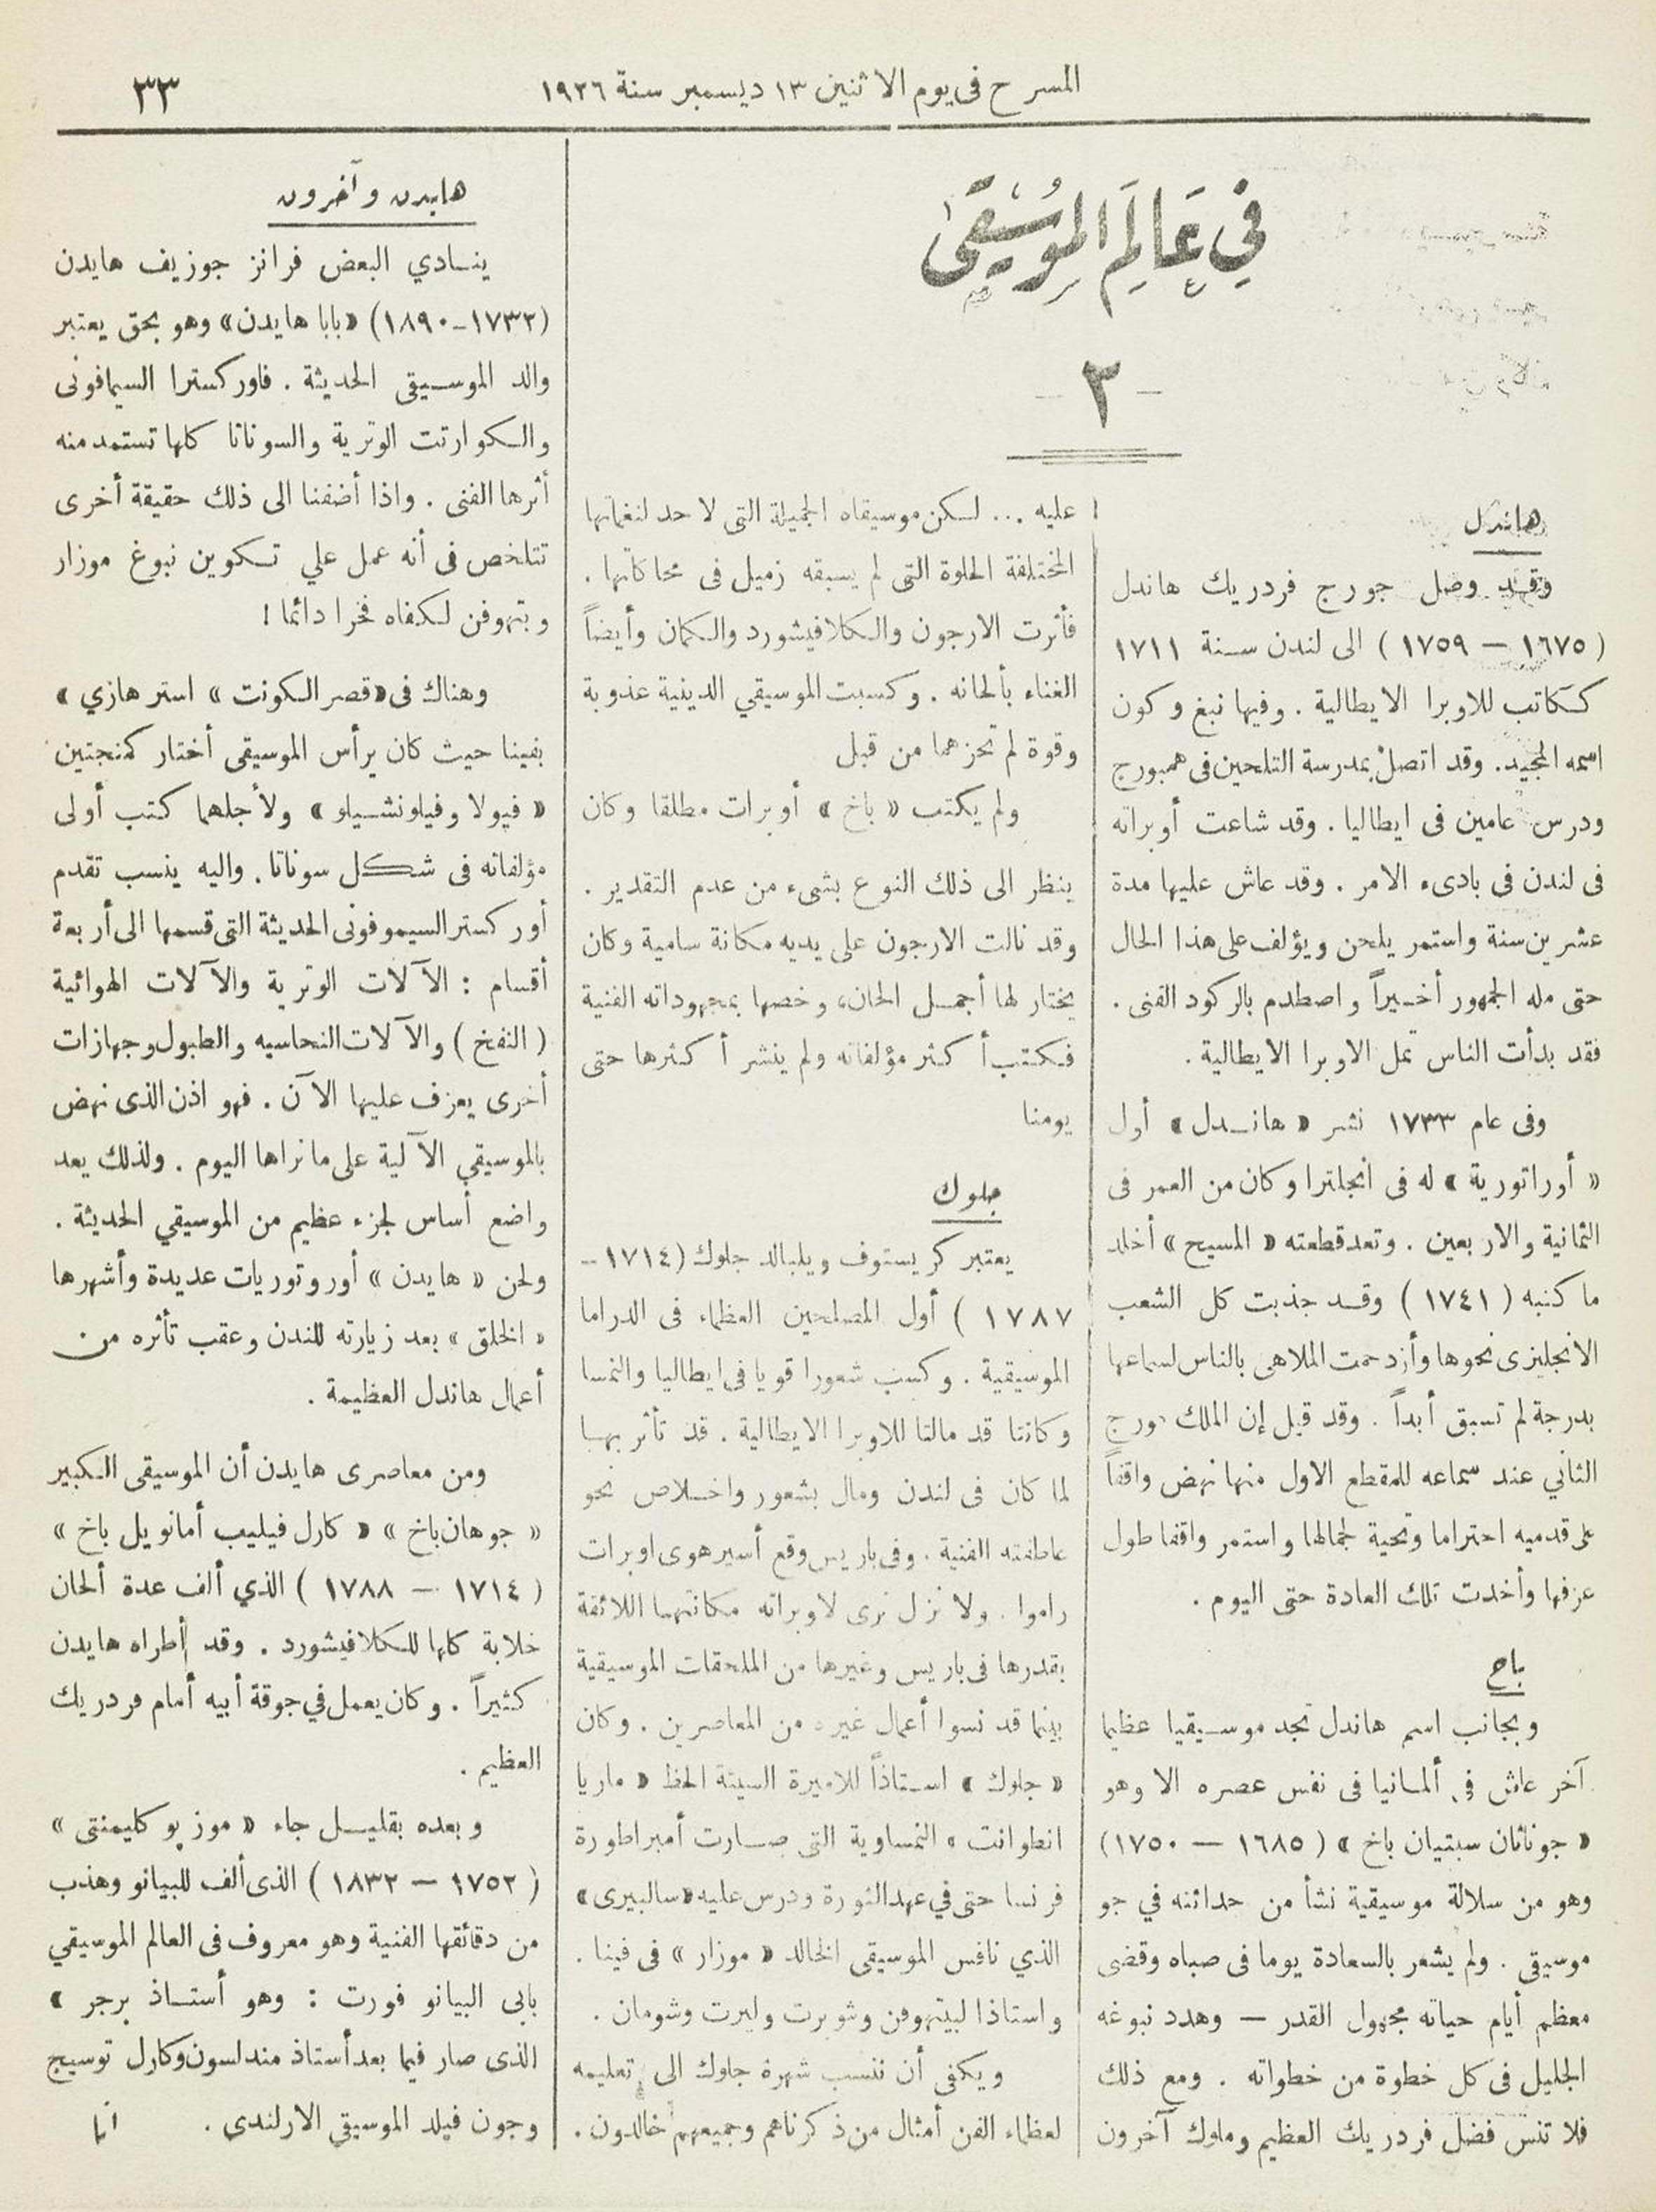 المسرح فى يوم الاثنين ١٣ ديسمبر سنة ١٩٢٦
٣٣
في عالم الموسيقى
— ٢ —
هاندل
وقد وصل جورج فردريك هاندل
(١٦٧٥ — ١٧٥٩) الى لندن سنة ١٧١١
ككاتب للاوبرا الايطالية . وفيها نبغ وكون
اسمه المجيد. وقد اتصل بمدرسة التلحين فى همبورج
ودرس عامين فى ايطاليا . وقد شاعت أوبراته
فى لندن فى بادىء الامر . وقد عاش عليها مدة
عشرين سنة واستمر يلحن ويؤلف على هذا الحال
حتى مله الجمهور أخيراً واصطدم بالركود الفنى .
فقد بدأت الناس تمل الاوبرا الايطالية .
وفى عام ١٧٣٣ نشر « هاندل » أول
« أوراتورية » له فى انجلترا وكان من العمر فى
الثمانية والاربعين . وتعد قطعته « المسيح » أخلد
ما كتبه (١٧٤١) وقد جذبت كل الشعب
الانجليزى نحوها وأزدحمت الملاهى بالناس لسماعها
بدرجة لم تسبق أبداً . وقد قيل إن الملك جورج
الثاني عند سماعه للمقطع الاول منها نهض واقفاً
على قدميه احتراما وتحية لجمالها واستمر واقفا طول
عزفها وأخدت تلك العادة حتى اليوم .
باخ
وبجانب اسم هاندل نجد موسيقيا عظيما
آخر عاش فى ألمانيا فى نفس عصره الا وهو
« جوناثان سبتيان باخ » (١٦٨٥ — ١٧٥٠)
وهو من سلالة موسيقية نشأ من حداثته في جو
موسيقى . ولم يشعر بالسعادة يوما فى صباه وقضى
معظم أيام حياته مجهول القدر — وهدد نبوغه
الجليل فى كل خطوة من خطواته . ومع ذلك
فلا تنس فضل فردريك العظيم وملوك آخرون
عليه ... لكن موسيقاه الجميلة التى لا حد لنغماتها
المختلفة الحلوة التى لم يسبقه زميل فى محاكاتها .
فأثرت الارجون والكلافيشورد والكمان وأيضاً
الغناء بألحانه . وكسبت الموسيقي الدينية عذوبة
وقوة لم تحزهما من قبل
ولم يكتب « باخ » أوبرات مطلقا وكان
ينظر الى ذلك النوع بشىء من عدم التقدير .
وقد نالت الارجون على يديه مكانة سامية وكان
يختار لها أجمل الحان، وخصها بمجهوداته الفنية
فكتب أكثر مؤلفاته ولم ينشر أكثرها حتى
يومنا
جلوك
يعتبر كريستوف ويلبالد جلوك (١٧١٤ —
١٧٨٧) أول المصلحين العظماء فى الدراما
الموسيقية . وكسب شعورا قويا في ايطاليا والنمسا
وكانتا قد مالتا للاوبرا الايطالية . قد تأثر بها
لما كان فى لندن ومال بشعور واخلاص نحو
عاطفته الفنية . وفى باريس وقع أسير هوى اوبرات
راموا . ولا نزل نرى لاوبراته مكانتها اللائقة
بقدرها فى باريس وغيرها من الملحقات الموسيقية
بينما قد نسوا أعمال غيره من المعاصرين . وكان
« جلوك » استاذاً للاميرة السيئة الحظ « ماريا
انطوانت » النمساوية التى صارت أمبراطورة
فرنسا حتى في عهد الثورة ودرس عليه «سالبيرى»
الذي نافس الموسيقى الخالد « موزار » فى فينا .
واستاذا لبيتهوفن وشوبرت وليرت وشومان .
ويكفى أن ننسب شهرة جلوك الى تعليمه
لعظماء الفن أمثال من ذكرناهم وجميعهم خالدون .
هايدن وآخرون
ينادي البعض فرانز جوزيف هايدن
(١٧٣٢ـ١٨٩٠) «بابا هايدن» وهو بحق يعتبر
والد الموسيقى الحديثة . فاوركسترا السيمافونى
والكوارتت الوترية والسوناتا كلها تستمد منه
أثرها الفنى . واذا أضفنا الى ذلك حقيقة أخرى
تتلخص فى أنه عمل علي تكوين نبوغ موزار
وبتهوفن لكفاه فخرا دائما !
وهناك فى «قصر الكونت» استرهازي »
بفينا حيث كان يرأس الموسيقى أختار كمنجتين
« فيولا وفياونشيلو » ولأجلهما كتب أولى
مؤلفاته فى شكل سوناتا . واليه ينسب تقدم
أوركستر السيموفونى الحديثة التى قسمها الى أربعة
أقسام : الآلات الوترية والآلات الهوائية
( النفخ ) والآلات النحاسيه والطبول وجهازات
أخرى يعزف عليها الآن . فهو اذن الذى نهض
بالموسيقي الآلية على ما نراها اليوم . ولذلك يعد
واضع أساس لجزء عظيم من الموسيقي الحديثة .
ولحن « هايدن » أوروتوريات عديدة وأشهرها
« الخلق » بعد زيارته للندن وعقب تأثره من
أعمال هاندل العظيمة .
ومن معاصرى هايدن أن الموسيقى الكبير
« جوهان باخ » « كارل فيليب أمانويل باخ »
(١٧١٤ — ١٧٨٨) الذي ألف عدة ألحان
خلابة كلها للكلافيشورد . وقد أطراه هايدن
كثيراً . وكان يعمل في جوقة أبيه أمام فردريك
العظيم .
وبعده بقليل جاء « موزيو كليمنتى »
(١٧٥٢ — ١٨٣٢) الذى ألف للبيانو وهذب
من دقائقها الفنية وهو معروف فى العالم الموسيقي
بابى البيانو فورت : وهو أستاذ برجر »
الذى صار فيما بعد أستاذ مندلسون وكارل توسيج
وجون فيلد الموسيقي الارلندى .
انا